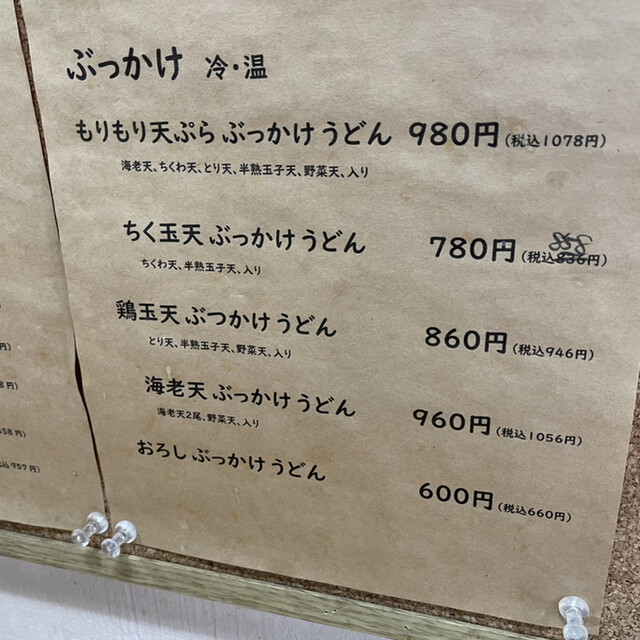 ぶっかけ 冷・温
もりもり天ぷら ぶっかけ うどん 980円(税込1078円)
海老天、ちくわ天、とり天、半熟玉子天、野菜天、入り
ちく玉天 ぶっかけ うどん 780円(税込858円)
ちくわ天、半熟玉子天、入り
鶏玉天 ぶつかけ うどん 860円(税込946円)
とり天、半熟玉子天、野菜天、入り
海老天 ぶっかけ うどん 960円(税込1056円)
海老天2尾、野菜天、入り
おろし ぶっかけ うどん 600円(税込660円)
957円)